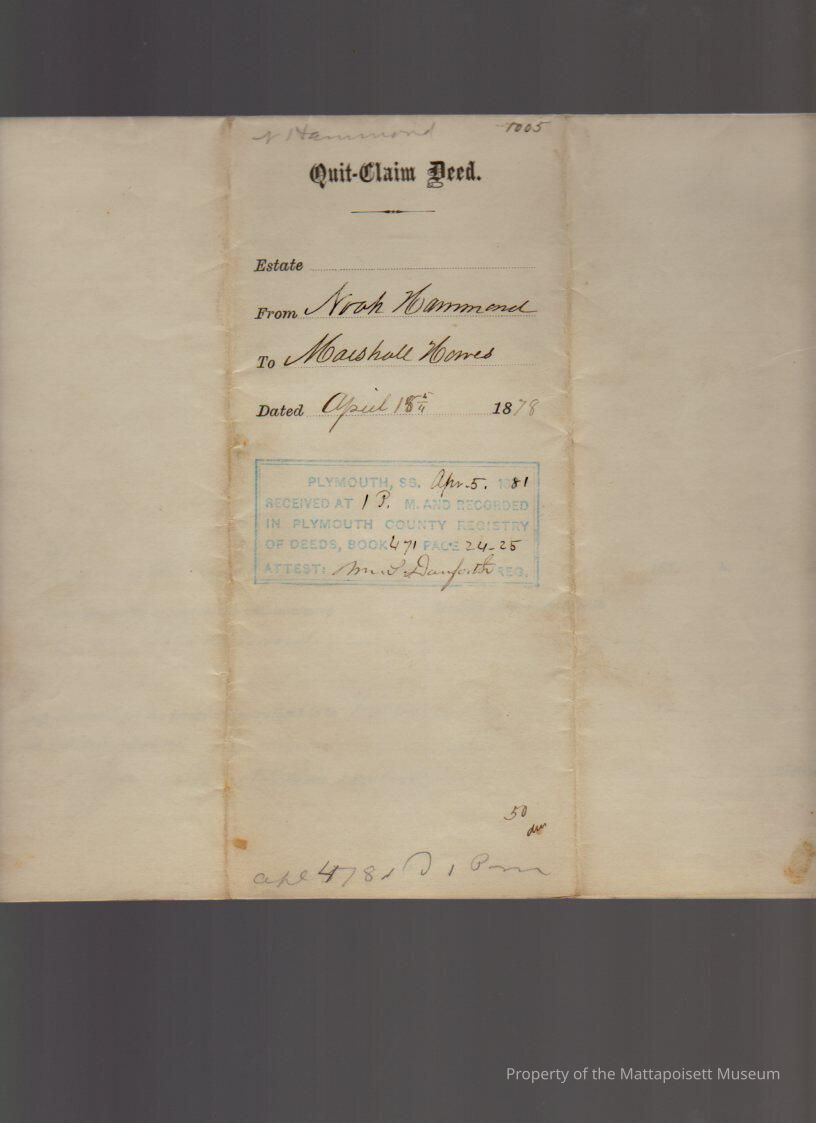 N Hammond 1005
Quit-Claim Deed.
Estate
From Noah Hammond
To Marshall Howes
Dated April 18th 1878
PLYMOUTH, SS. Apr. 5. 1881
RECEIVED AT 1 P. M. AND RECORDED
IN PLYMOUTH COUNTY REGISTRY
OF DEEDS, BOOK 471 PAGE 24-25
ATTEST: Wm. S. Danforth REG.
50
1 P m
Property of the Mattapoisett Museum